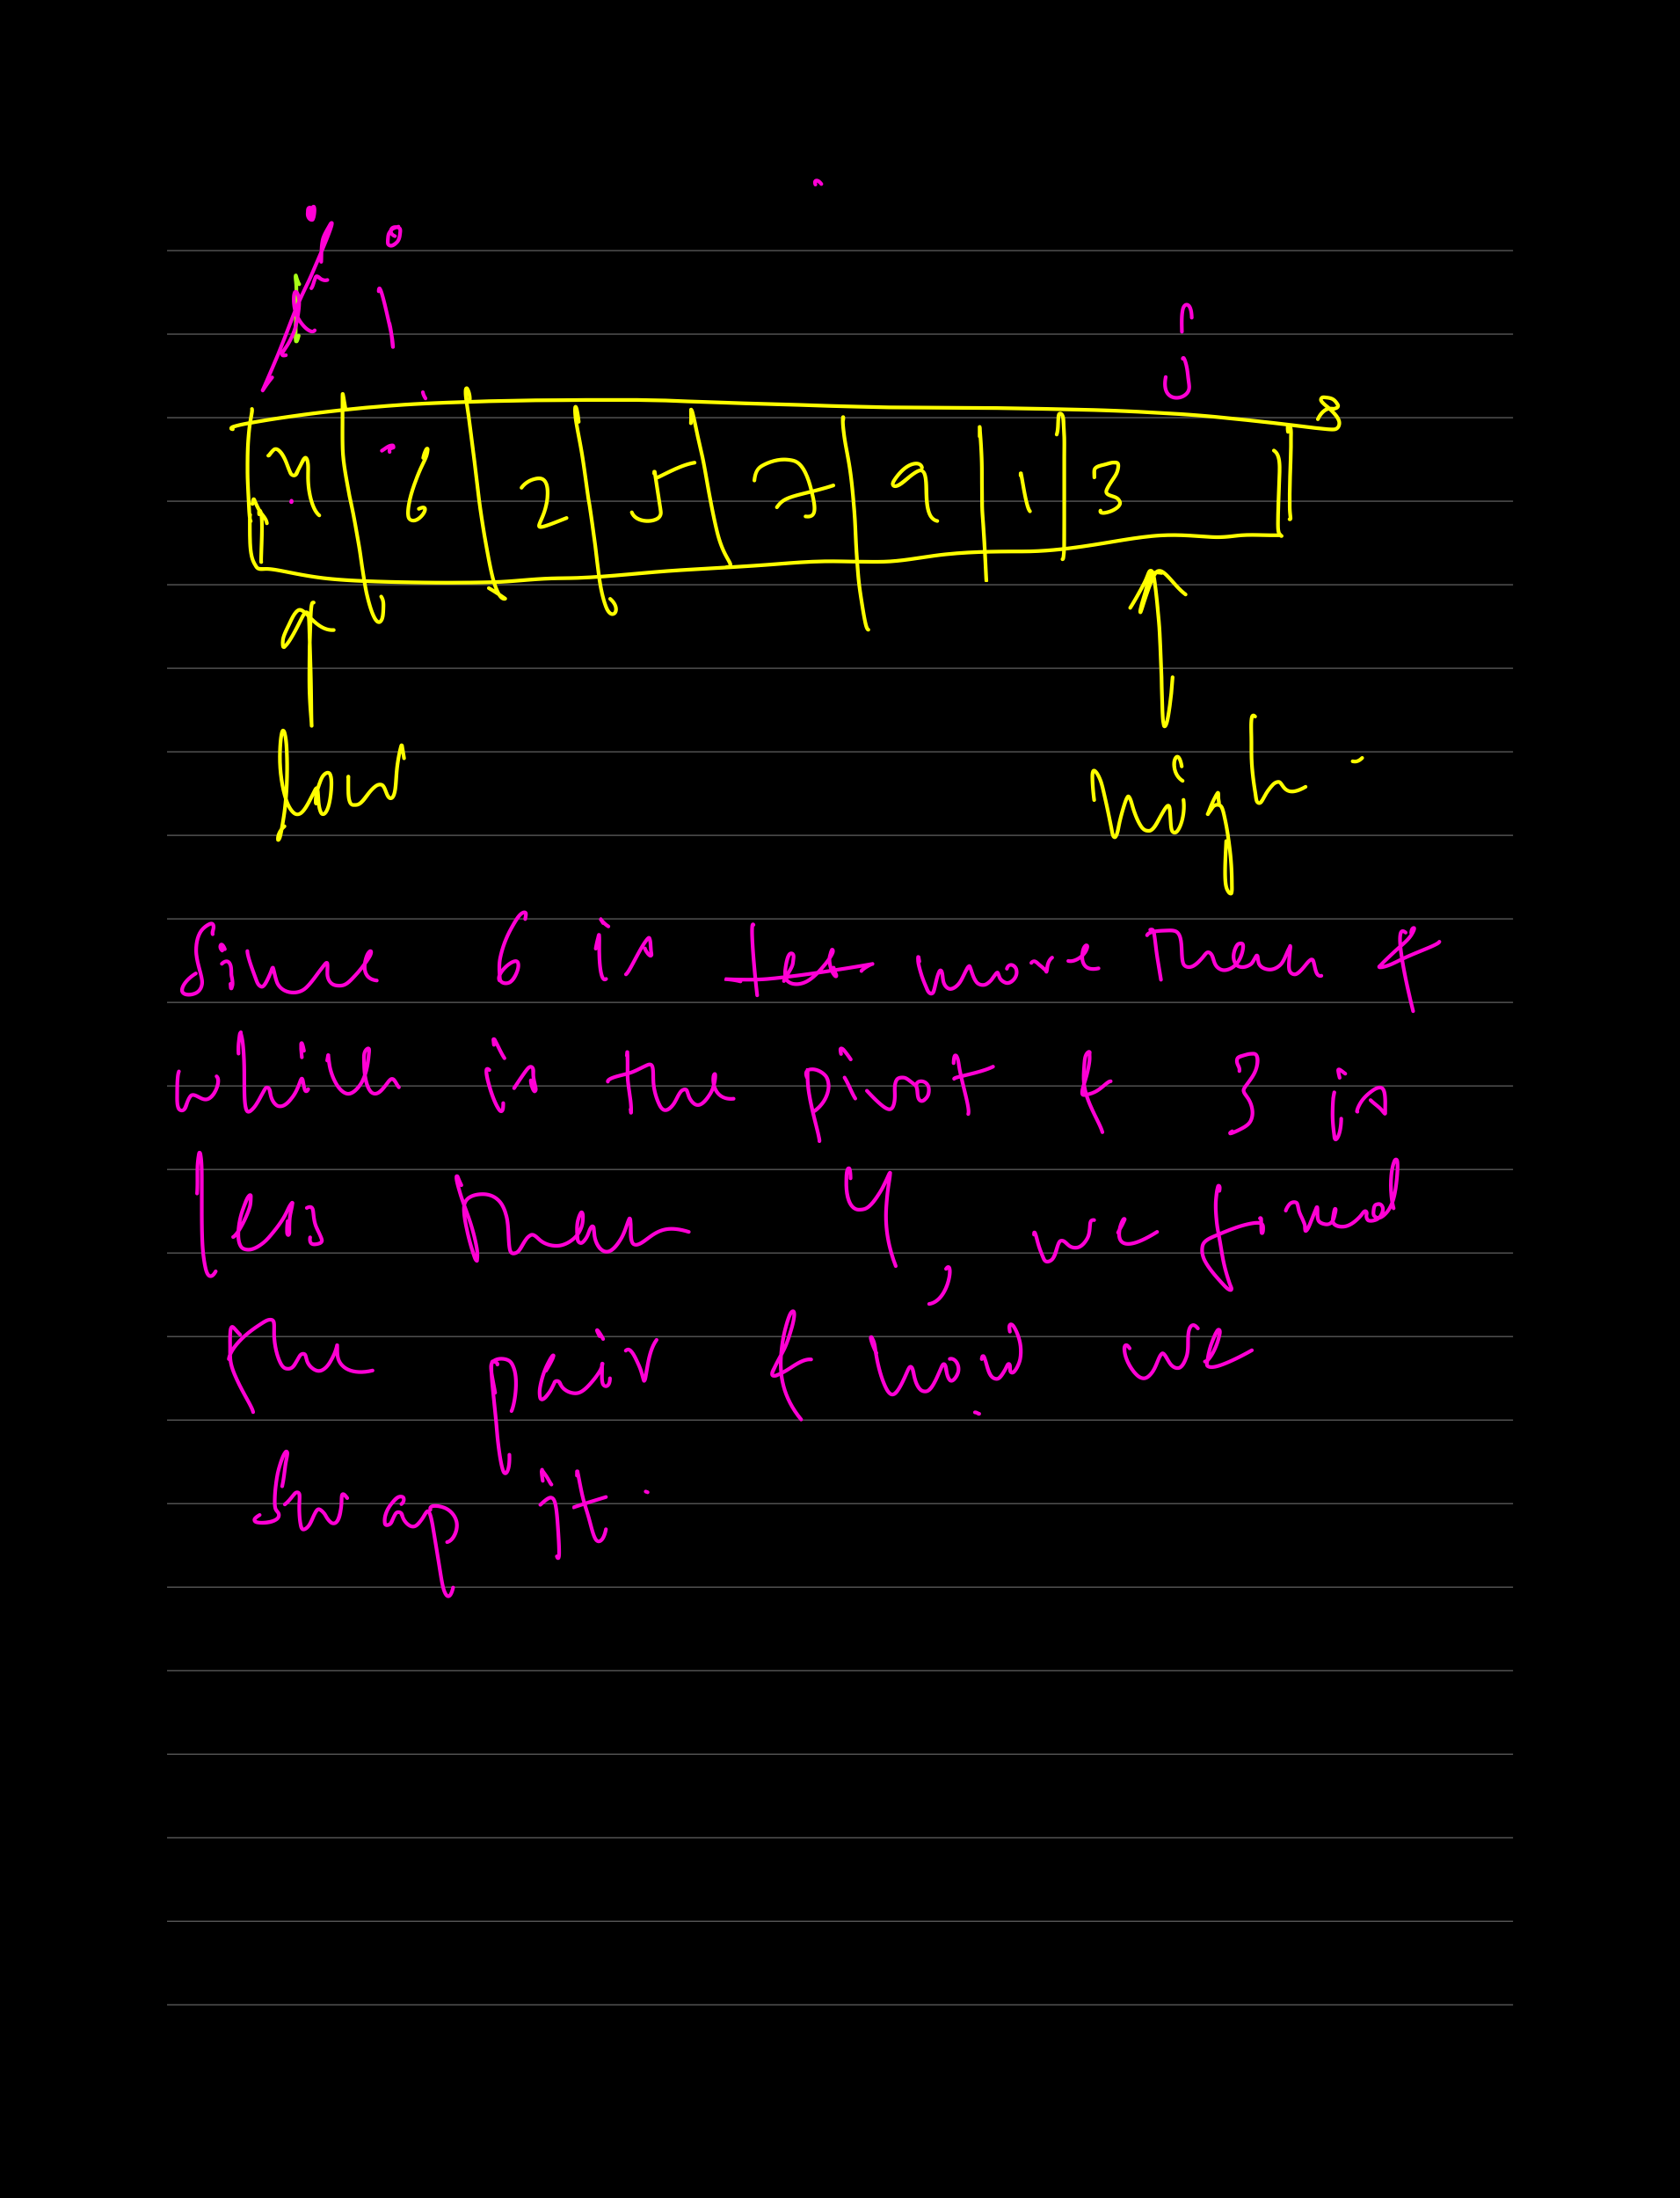 i i
j
4 6 2 5 7 9 1 3
low
high
Since 6 is les more then 4
which is the pivot & 3 is
less then 4, we found
the pair & now we
swap it.